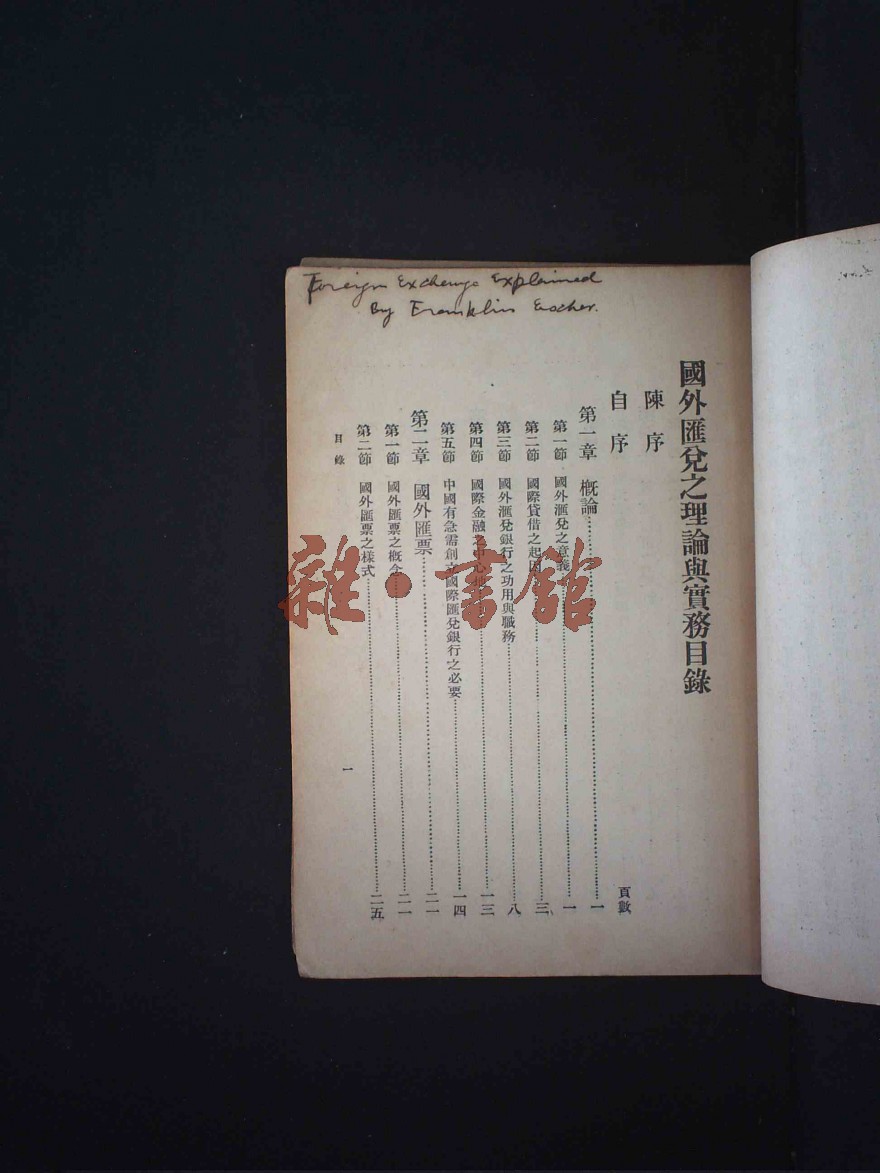 Foreign Exchange Explained
By Franklin Escher.
國外匯兌之理論與實務目錄
陳序
自序
頁數
第一章 概論……一
第一節 國外滙兌之意義……一
第二節 國際貸借之起因……三
第三節 國外滙兌銀行之功用與職務……八
第四節 國際金融之中心地……一三
第五節 中國有急需創立國際匯兌銀行之必要……一四
第二章 國外匯票……二一
第一節 國外匯票之概念……二一
第二節 國外匯票之樣式……二五
目錄
一
雜·書館